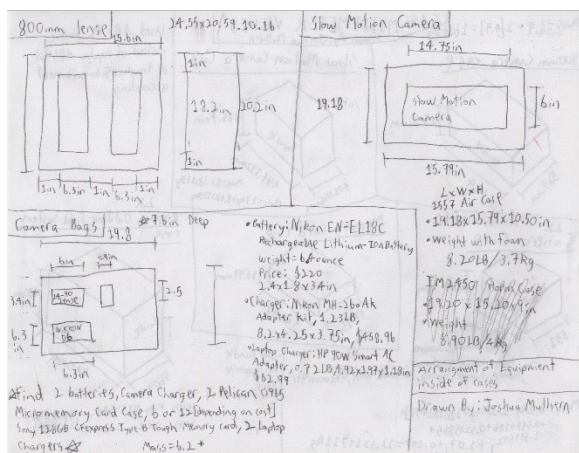 800mm lense
15.6in
24.55x20.59.10.16
1in
18.2in
20.2in
1in
1in 6.3in 1in 6.3in 1in
Slow Motion Camera
14.75in
19.18
Slow Motion
Camera
6in
15.79in
LxWxH
1557 Air Case
•19.18x15.79x10.50in
•Weight with foam
8.20LB/3.7kg
IM2450 Storm Case
•19.20x15.20x9in
•Weight
8.90LB/4kg
Arrangement of Equipment
inside of cases
Drawn By: Joshua Mulhern
Camera Bags
☆7.6in Deep
19.8
6in
3.4in
24-70
lense
2.5
6.3
in
6.3in
•Battery: Nikon EN-EL18C
Rechargeable Lithium-Ion Battery
Weight=6.4ounce
Price: $220
2.4x1.8x3.4in
•Charger: Nikon MH-26aAK
Adapter Kit, 1.23LB,
8.2x4.25x3.75in, $458.96
•Laptop Charger: HP 90W Smart AC
Adapter, 0.72LB, 4.92x1.97x1.18in
$62.99
☆Find 2 batteries, Camera Charger, 2 Pelican 0965
Micromemory Card Case, 6 or 12[depending on cost]
Sony 128GB CFexpress Type B Tough Memory card, 2 laptop
Chargers☆
Mass=6.2+